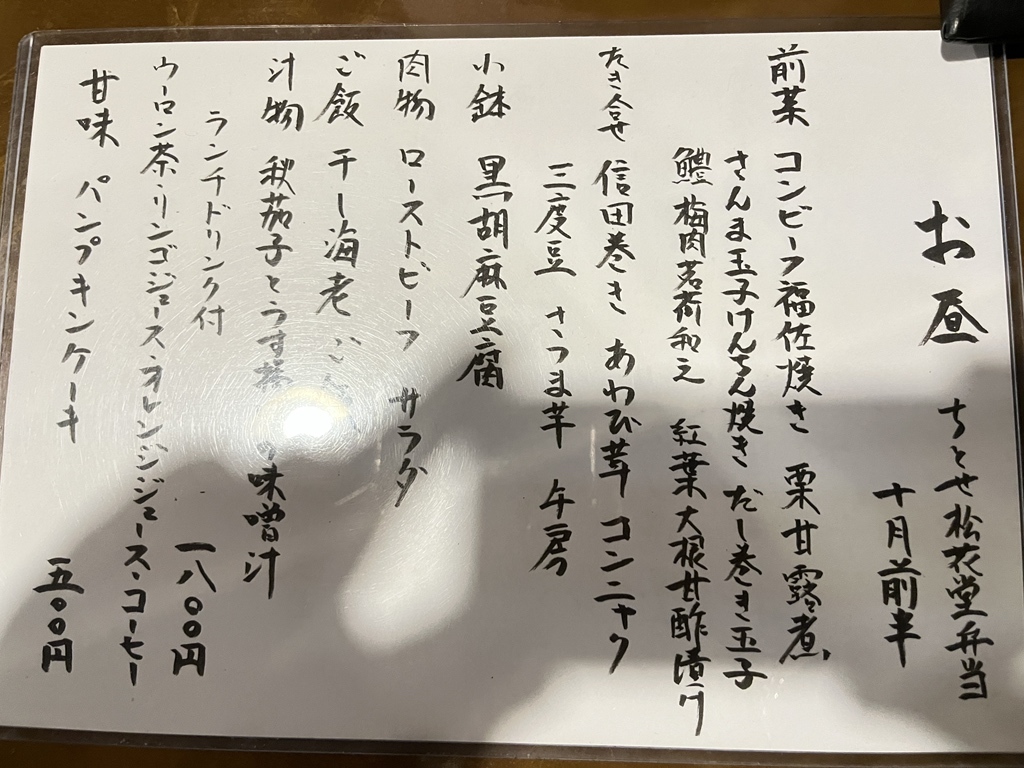 お昼 ちとせ松花堂弁当
十月前半
前菜 コンビーフ福佐焼き 栗甘露煮
さんま玉子けんちん焼き だし巻き玉子
鱧梅肉茗荷和え 紅葉大根甘酢漬け
たき合せ 信田巻き あわび茸 コンニャク
三度豆 さつま芋 午房
小鉢 黒胡麻豆腐
肉物 ローストビーフ サラダ
ご飯 干し海老 ごはん
汁物 秋茄子とうす揚 味噌汁
ランチドリンク付 一八〇〇円
ウーロン茶・リンゴジュース・オレンジジュース・コーヒー
甘味 パンプキンケーキ 五〇〇円